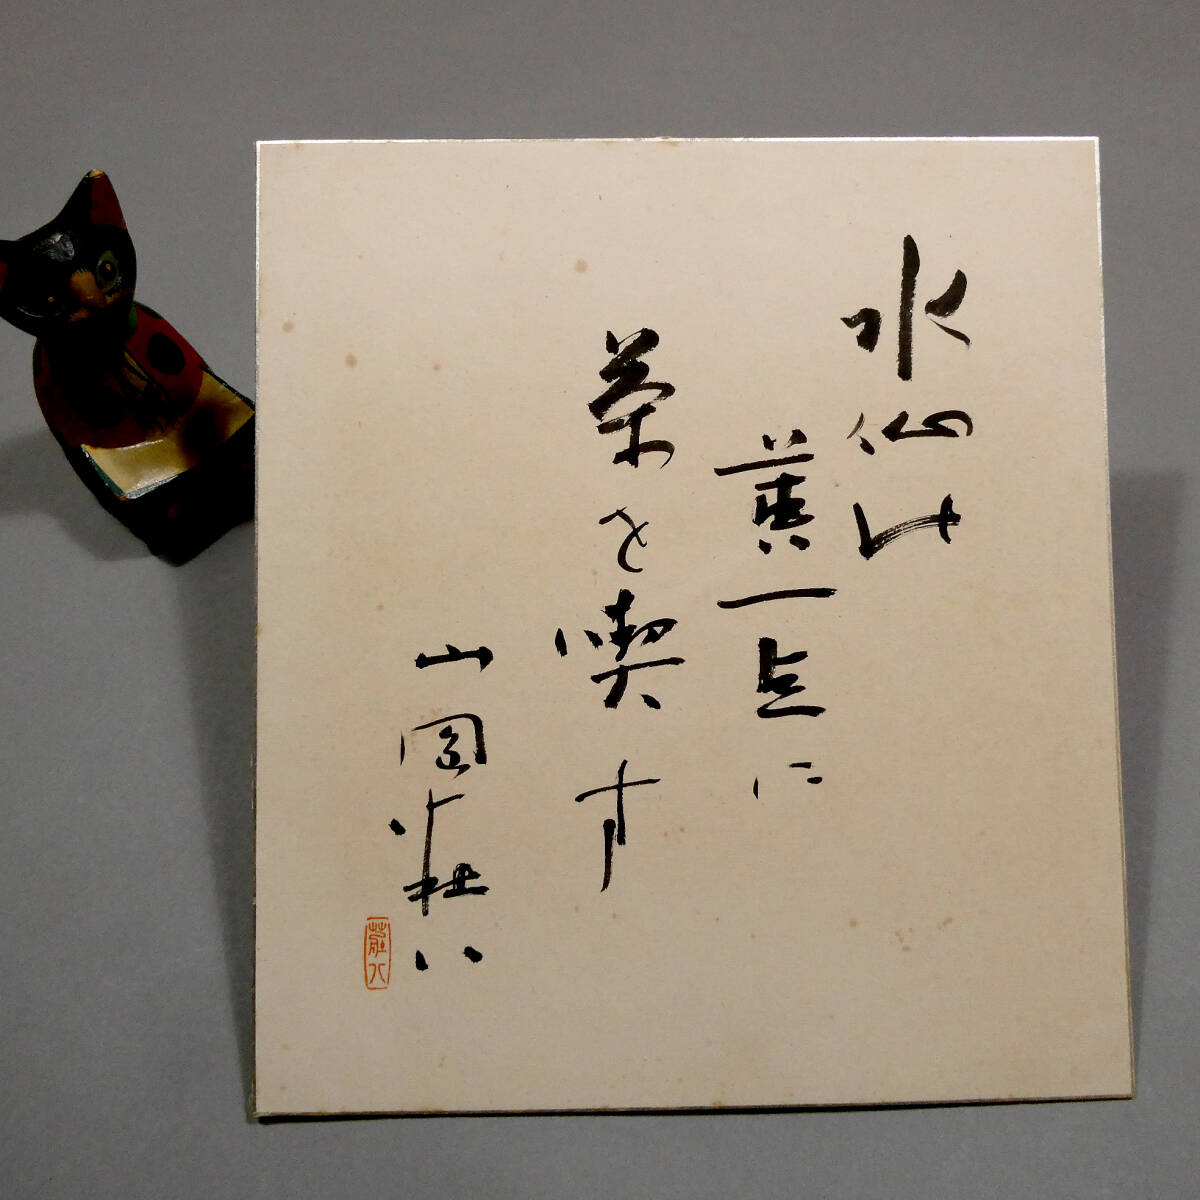 水仙は
黄一点に
茶を喫す
山岡荘八
荘八